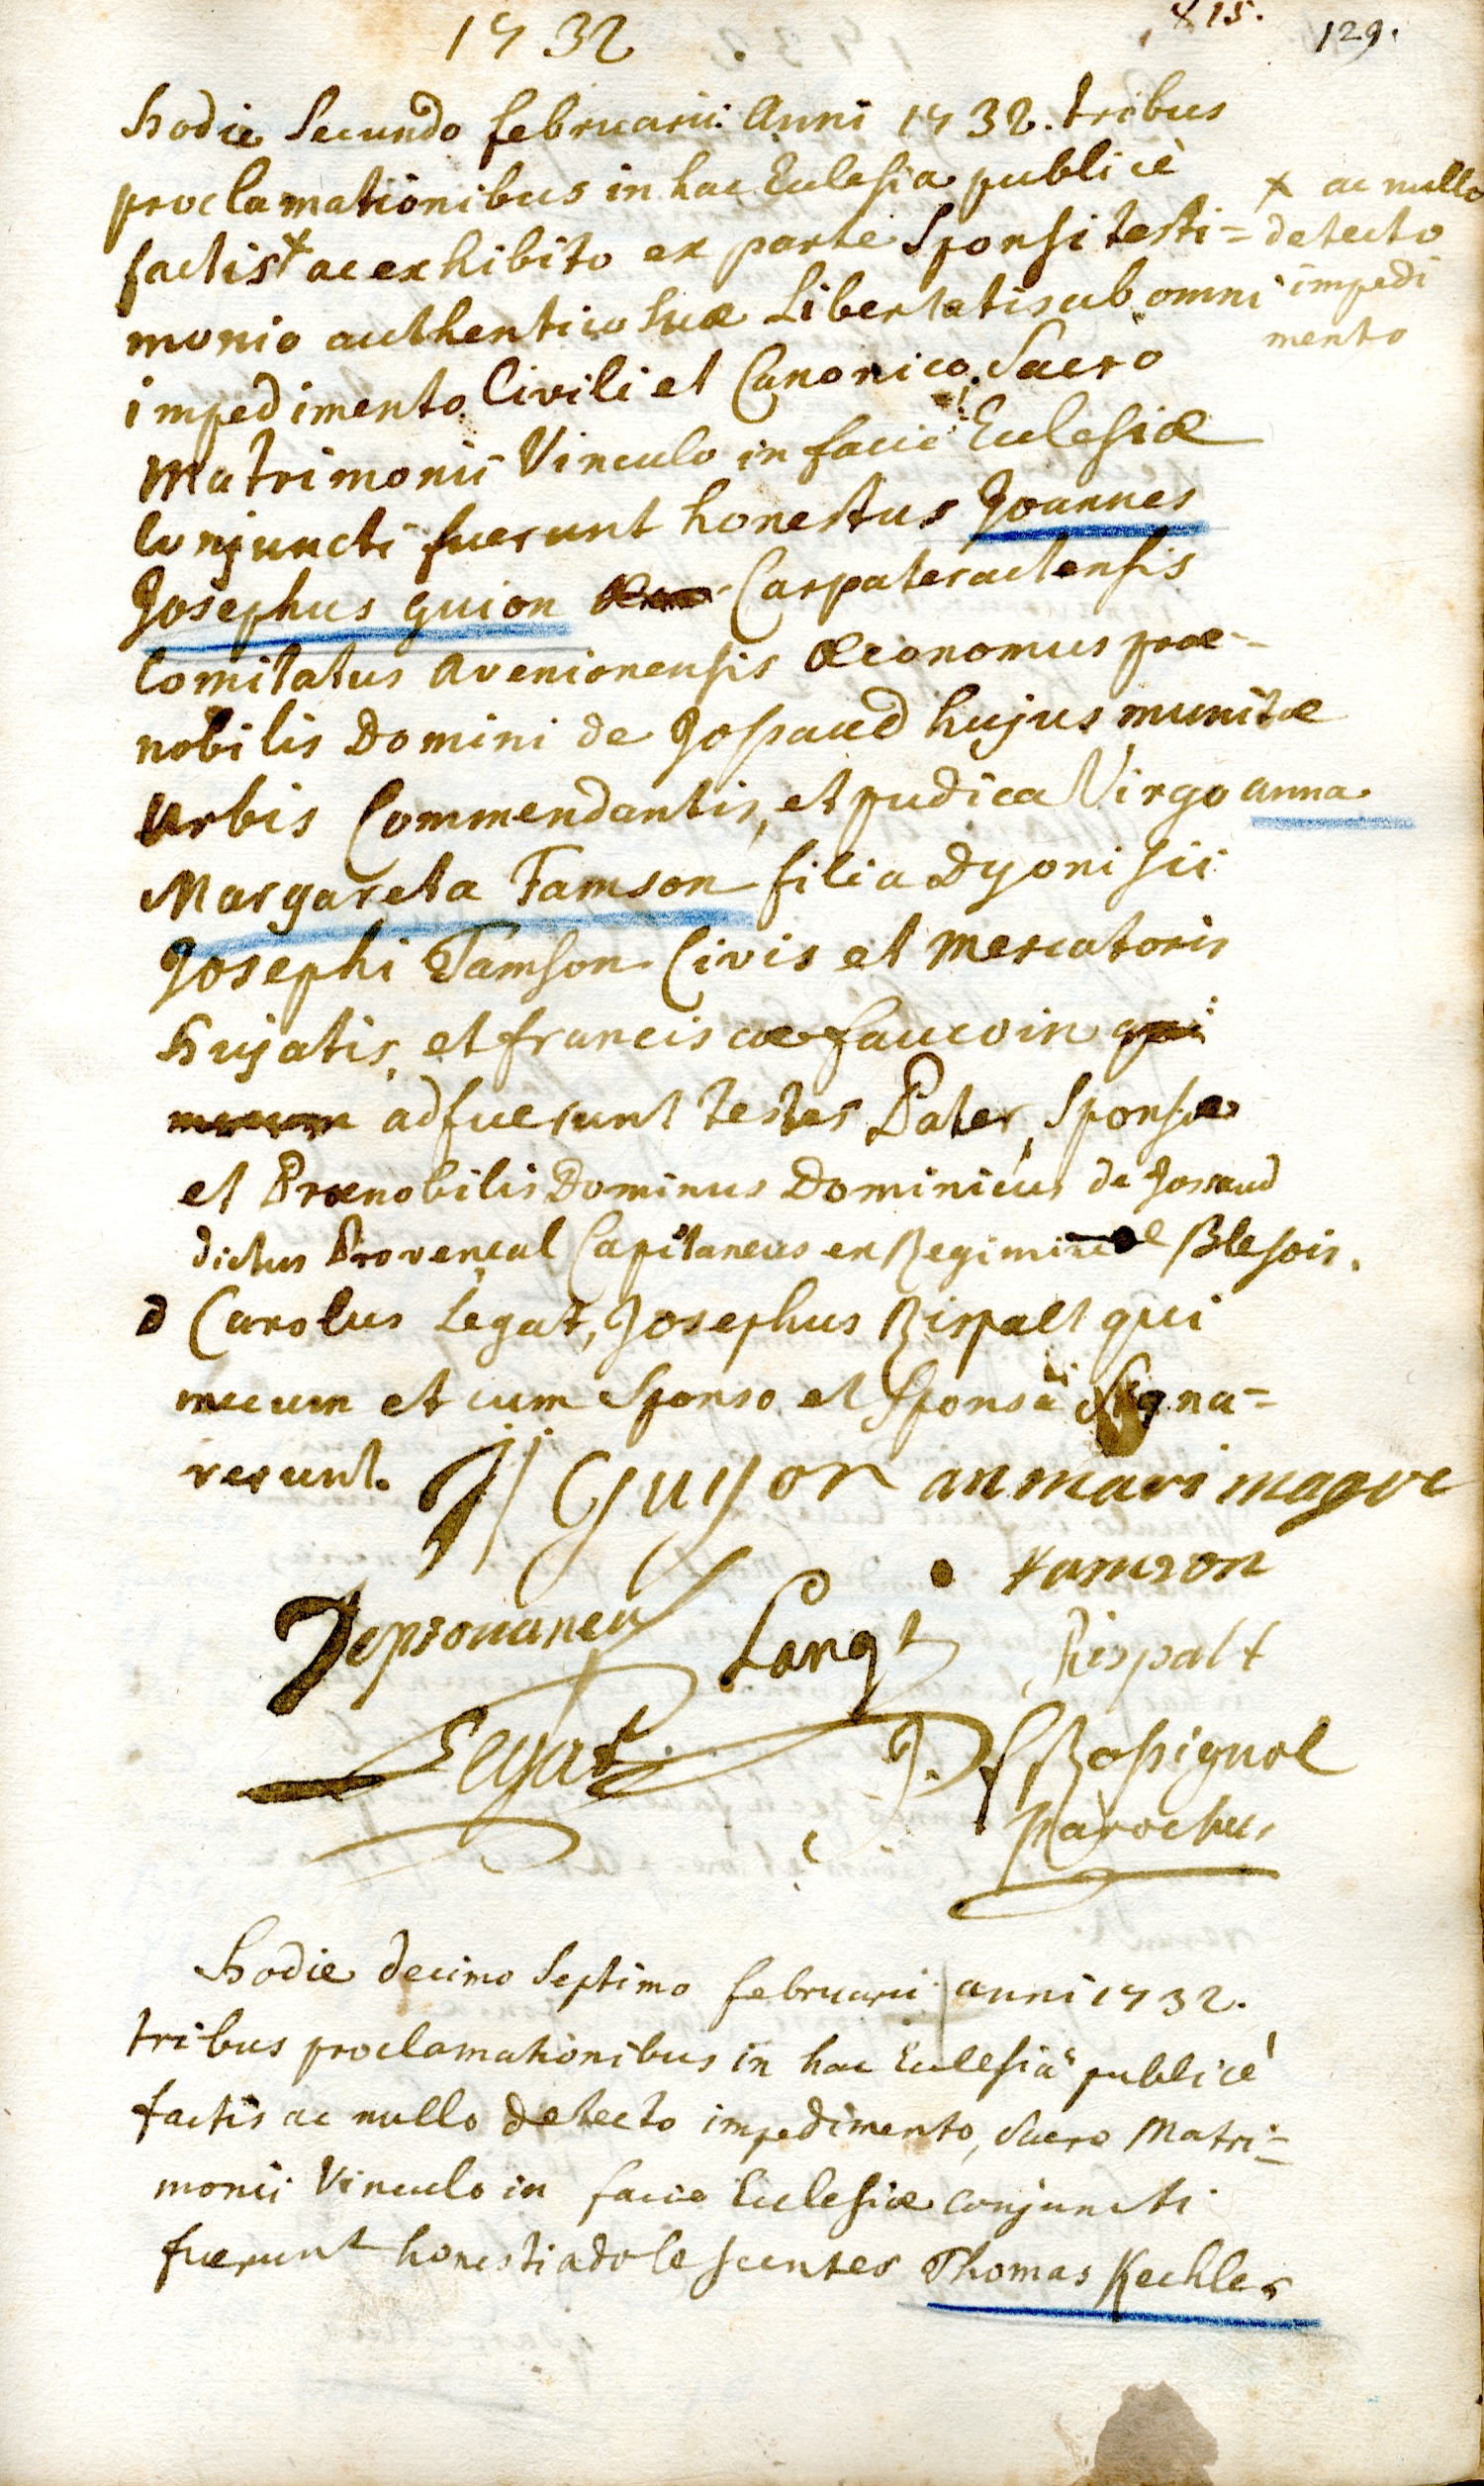 1732
815.
129.
hodie Secundo februarii Anni 1732. tribus
proclamationibus in hac Eclesia publicè
factis x ac exhibito ex parte Sponsi testi=
monio authentico Suæ Libertatis ab omni
impedimento Civili et Canonico Sacro
Matrimonii Vinculo in facie Eclesiæ
Conjuncti fuerunt honestus Joannes
Josephus guion Carpateractensis
Comitatus avenionensis œconomus præ-
nobilis Domini de Jossaud hujus munitæ
Urbis Commendantis, et pudica Virgo anna
Margareta Tamson filia Dyonisii
Josephi Tamson Civis et mercatoris
hujatis, et franciscæ faucoin
adfuerunt testes Pater Sponsæ
et Prænobilis Dominus Dominicus de Jossaud
dictus Provençal Capitaneus en Regimine Blesois.
D Carolus Legat, Josephus Rispalt qui
mecum et cum Sponso et Sponsâ Signa=
verunt.
x ac nullo
detecto
impedi
mento
JJ Guyon anmari magre
tamson
Deprouancu
Lang
Rispalt
Legat
J. f Rossignol
Parochus
hodie decimo Septimo februarii anni 1732.
tribus proclamationibus in hac Eclesiâ publicè
factis ac nullo detecto impedimento, Sacro Matri=
monii Vinculo in facie Eclesiæ conjuncti
fuerunt honesti adolescentes Thomas Kechler